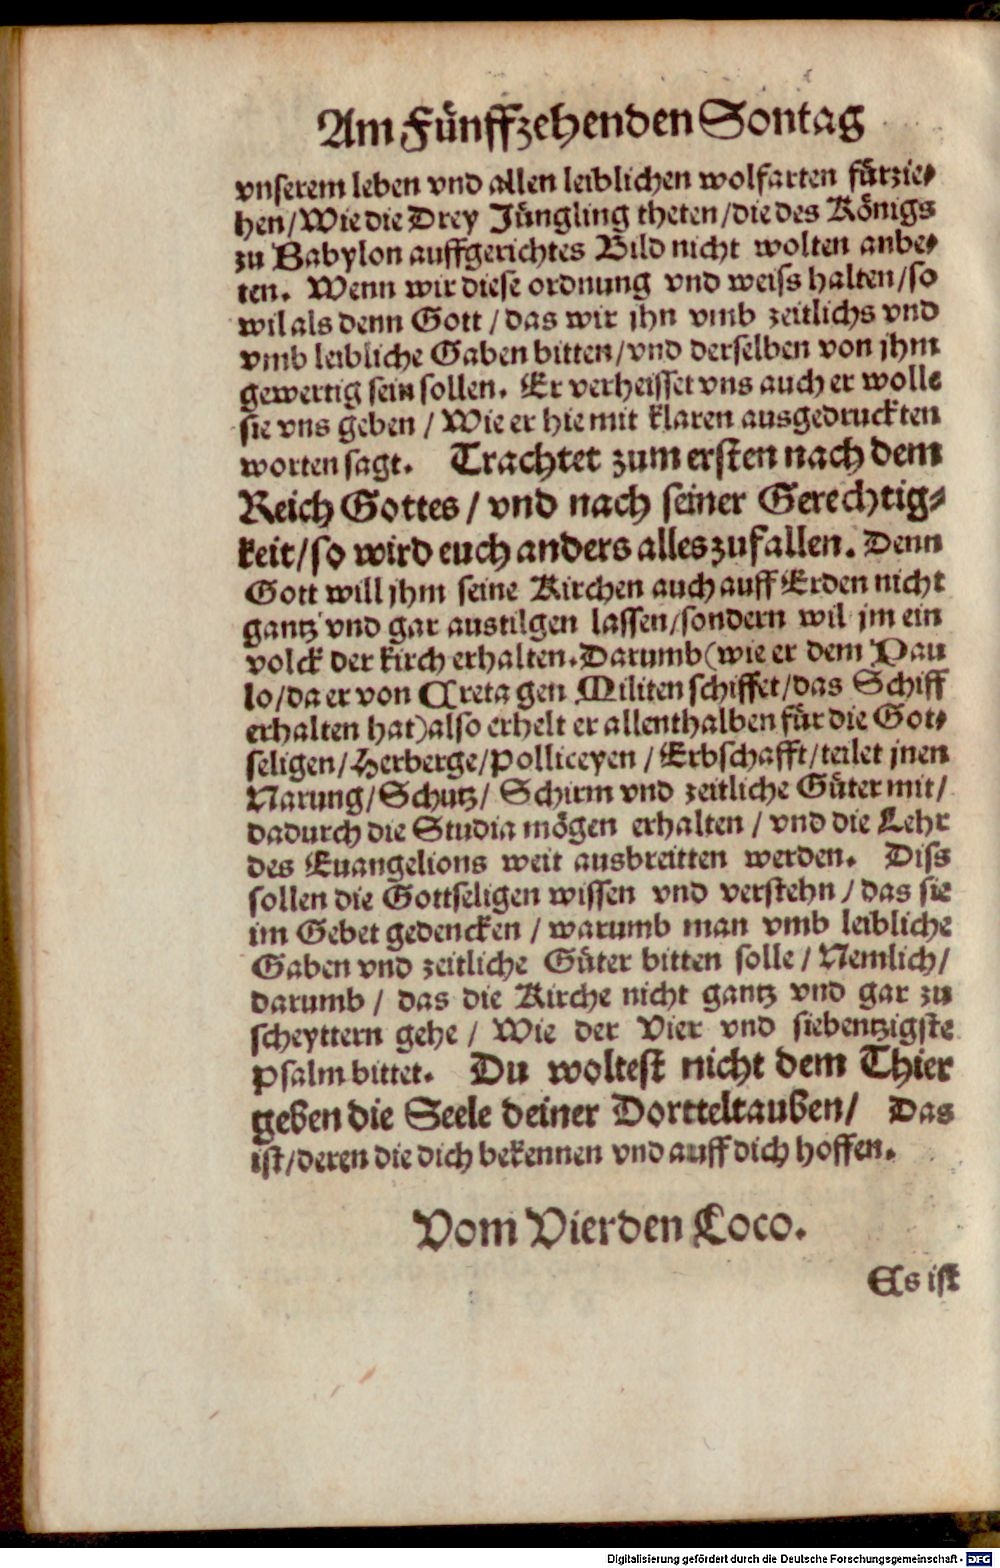 Am Fünffzehenden Sontag
vnserem leben vnd allen leiblichen wolfarten fürzie-
hen/Wie die Drey Jüngling theten/die des Königs
zu Babylon auffgerichtes Bild nicht wolten anbe-
ten. Wenn wir diese ordnung vnd weiss halten/so
wil als denn Gott/das wir jhn vmb zeitlichs vnd
vmb leibliche Gaben bitten/vnd derselben von jhm
gewertig sein sollen. Er verheisset vns auch er wolle
sie vns geben/Wie er hie mit klaren ausgedruckten
worten sagt. Trachtet zum ersten nach dem
Reich Gottes/vnd nach seiner Gerechtig-
keit/so wird euch anders alles zufallen. Denn
Gott will jhm seine Kirchen auch auff Erden nicht
gantz vnd gar austilgen lassen/sondern wil jm ein
volck der kirch erhalten. Darumb (wie er dem Pau
lo/da er von Creta gen Militen schiffet/das Schiff
erhalten hat) also erhelt er allenthalben für die Got-
seligen/Herberge/Polliceyen/Erbschafft/teilet jnen
Narung/Schutz/Schirm vnd zeitliche Güter mit/
dadurch die Studia mögen erhalten/vnd die Lehr
des Euangelions weit ausbreitten werden. Diss
sollen die Gottseligen wissen vnd verstehn/das sie
im Gebet gedencken/warumb man vmb leibliche
Gaben vnd zeitliche Güter bitten solle/Nemlich/
darumb/das die Kirche nicht gantz vnd gar zu
scheyttern gehe/Wie der Vier vnd siebentzigste
Psalm bittet. Du woltest nicht dem Thier
geben die Seele deiner Dortteltauben/ Das
ist/deren die dich bekennen vnd auff dich hoffen.
Vom Vierden Loco.
Es ist
Digitalisierung gefördert durch die Deutsche Forschungsgemeinschaft - DFG